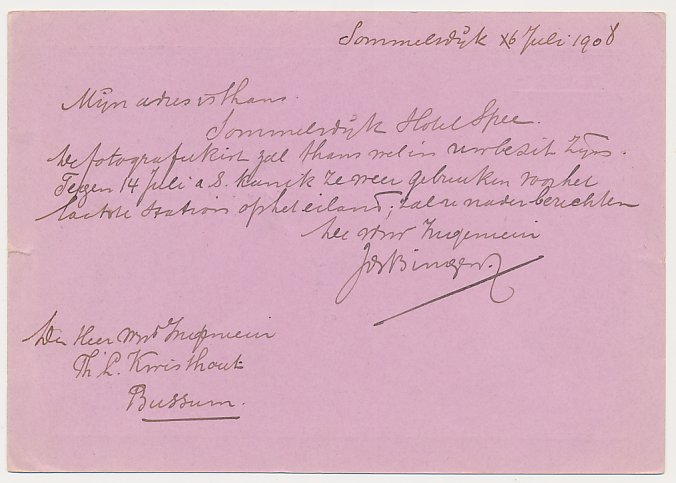 Sommelsdijk 6 Juli 1908
Mijn adres is thans
Sommelsdijk Hotel Spee.
De fotografiekist zal thans wel in uw bezit zijn.
Tegen 14 Juli a.S. kan ik ze weer gebruiken voor het
laatste station op het eiland; zal u nader berichten
De Ingenieur
Den Heer Ingenieur
Th. L. Kwisthout
Bussum.